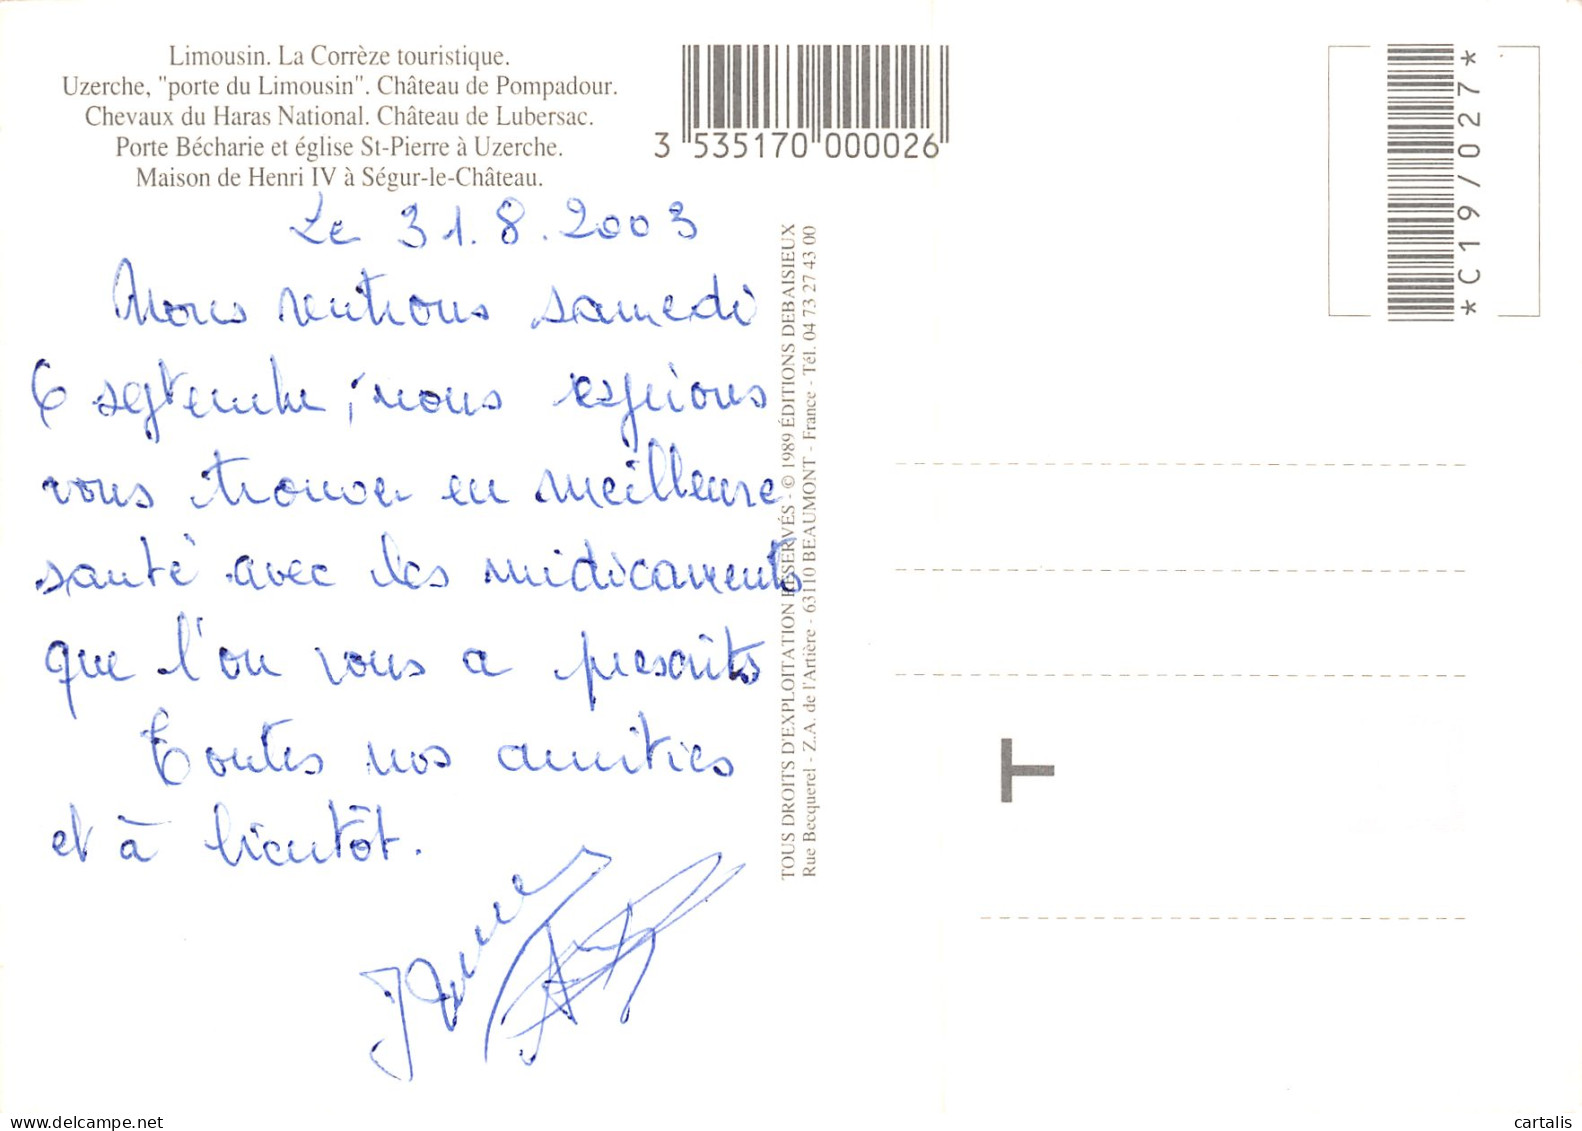 Limousin. La Corrèze touristique.
Uzerche, "porte du Limousin". Château de Pompadour.
Chevaux du Haras National. Château de Lubersac.
Porte Bécharie et église St-Pierre à Uzerche.
Maison de Henri IV à Ségur-le-Château.
3 535170 000026
*C19/027*
Le 31.8.2003
Nous rentrons samedi
6 septembre, nous espérons
vous trouver en meilleure
santé avec les médicaments
que l'on vous a prescrits
Toutes nos amitiés
et à bientôt.
TOUS DROITS D'EXPLOITATION RÉSERVÉS - © 1989 ÉDITIONS DEBAISIEUX
Rue Becquerel - Z.A. de l'Artière - 63110 BEAUMONT - France - Tél. 04 73 27 43 00
T
delcampe.net
cartalis